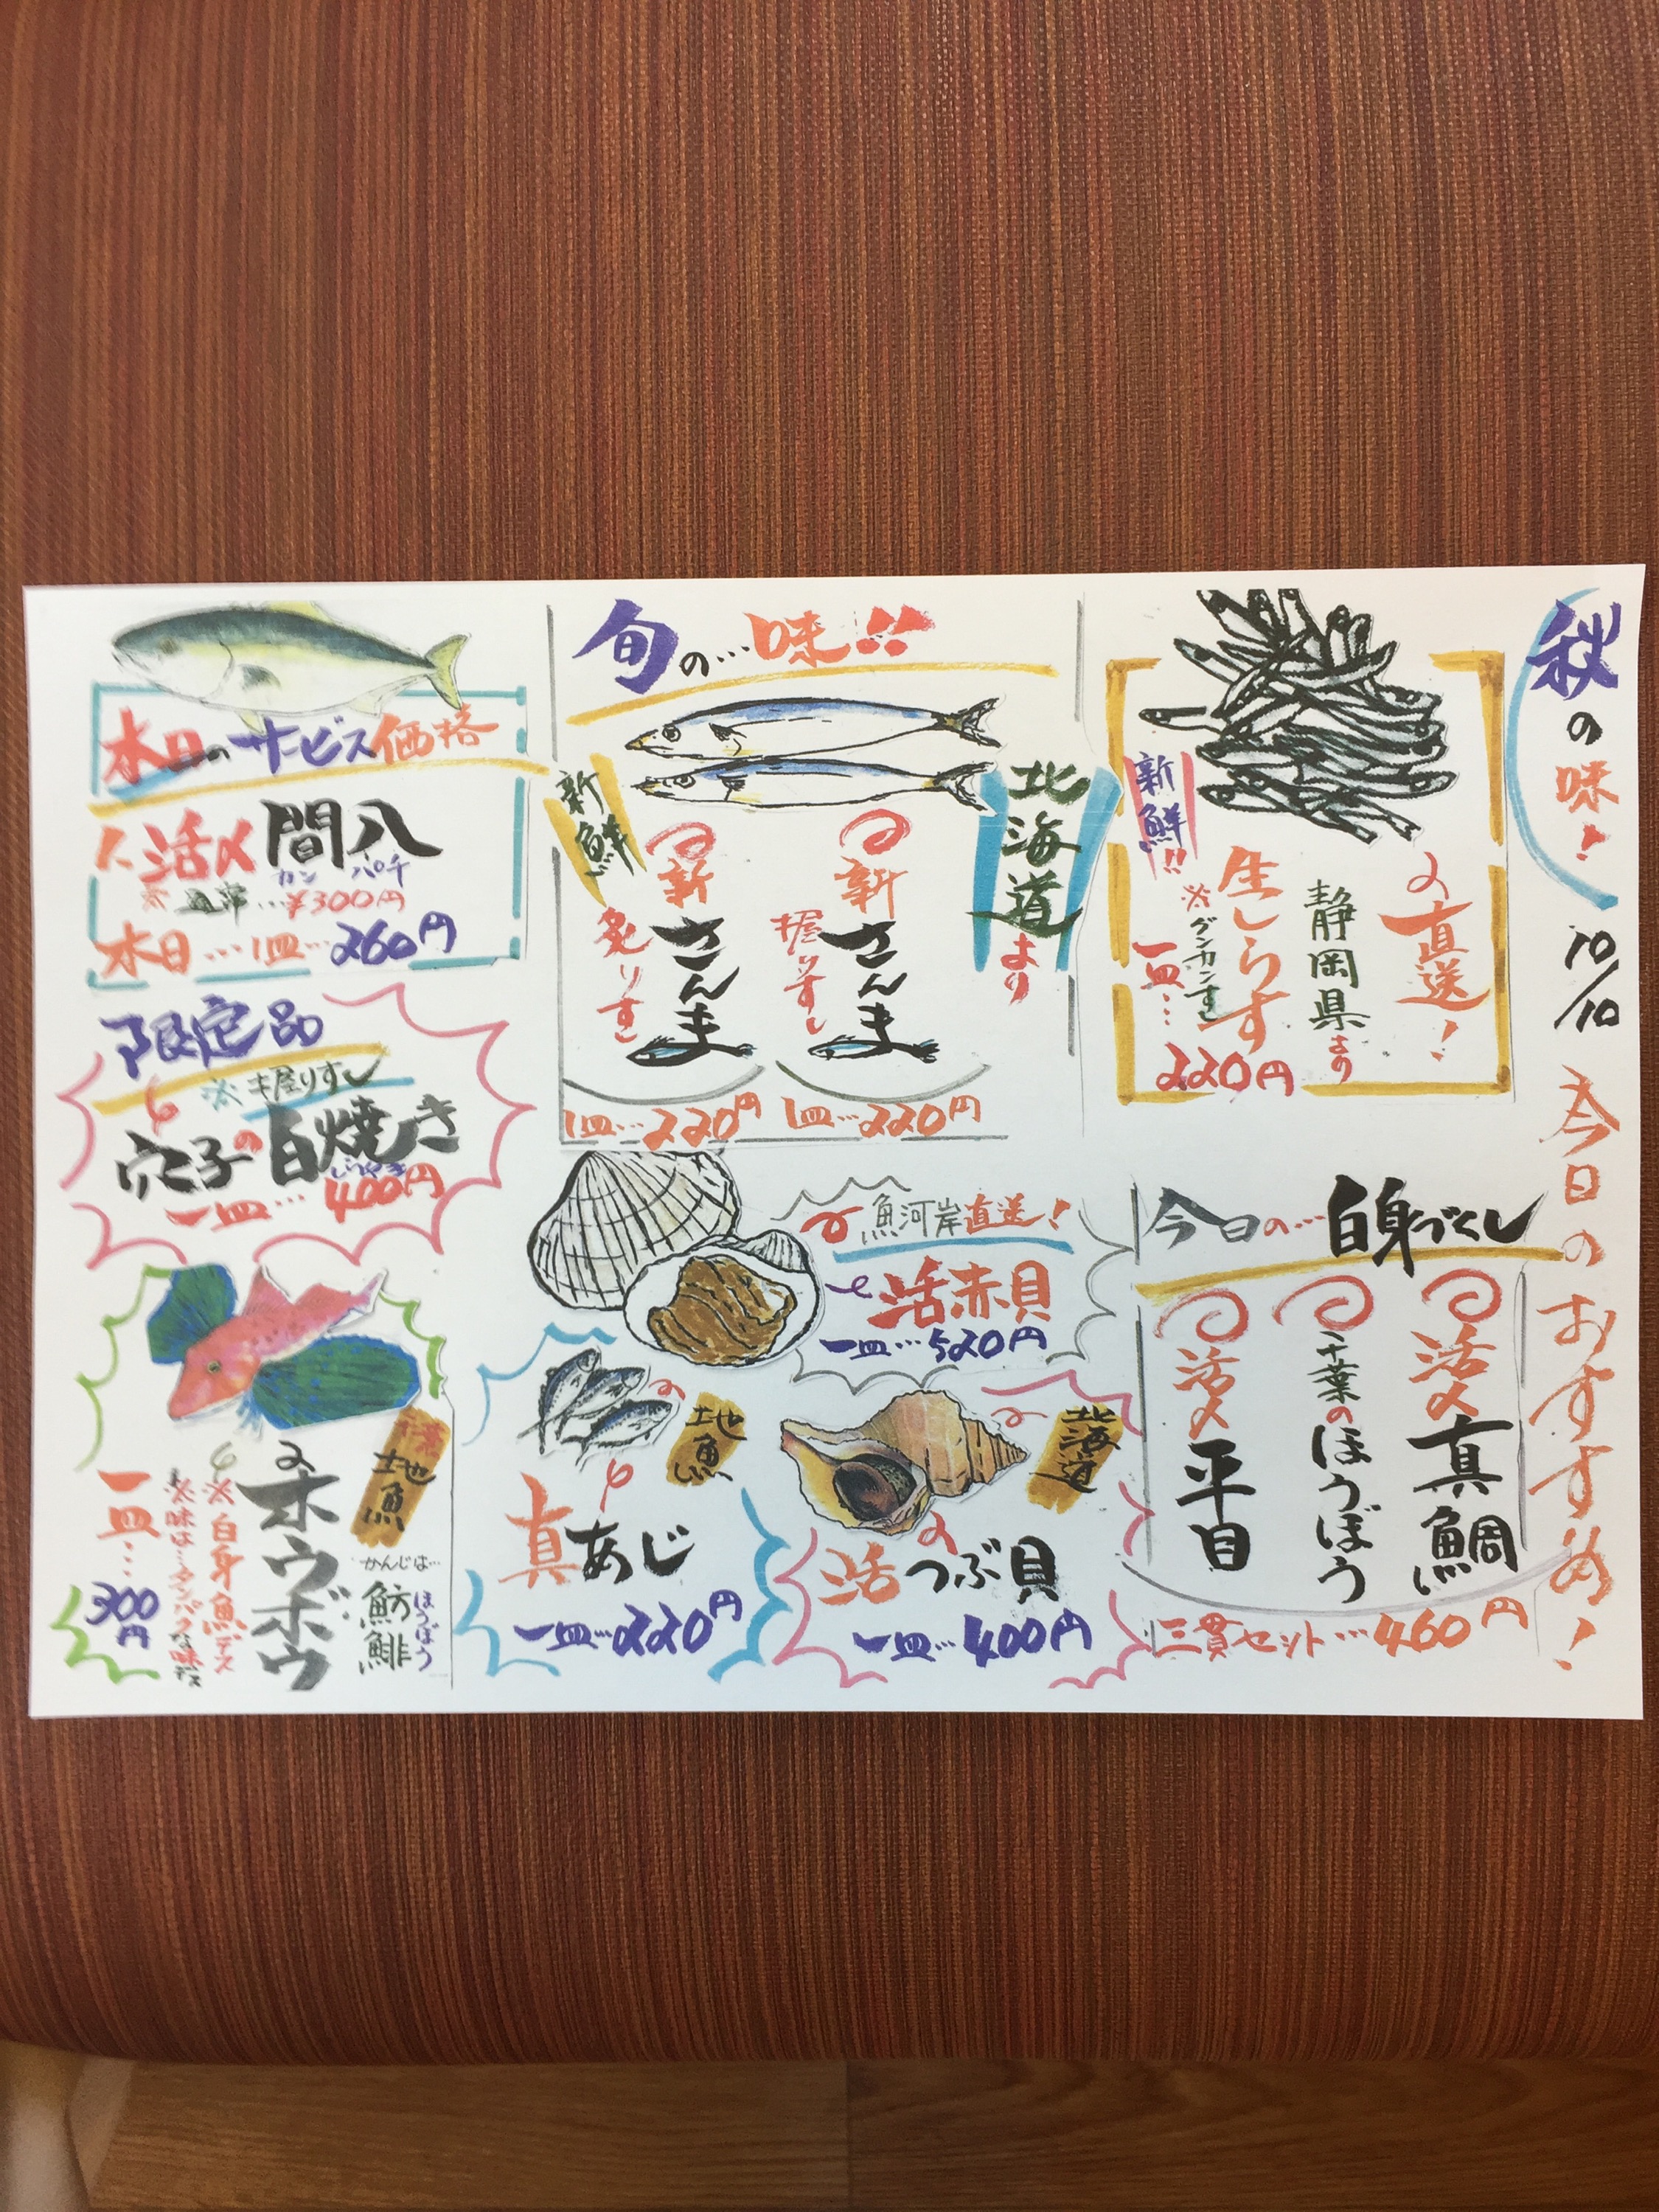 秋の味!
10/10
今日のおすすめ!
直送!
静岡県より
生しらす
※グンカンすし
新鮮!!
一皿…220円
旬の…味!!
北海道より
新鮮
新さんま
握りすし
1皿…220円
新さんま
炙りすし
1皿…220円
本日のサービス価格
活〆間八
カンパチ
※通常…¥300円
本日…1皿…260円
限定品
※握りすし
穴子の白焼き
しらやき
一皿…400円
今日の…白身づくし
活〆真鯛
千葉のほうぼう
活〆平目
三貫セット…460円
魚河岸直送!
活赤貝
一皿…520円
北海道
活つぶ貝
一皿…400円
地魚
真あじ
一皿…220円
千葉
地魚
かんじは…
ほうぼう
魴鮄
ホウボウ
※白身魚デス
※味は…タンパクな味デス
一皿…
300円